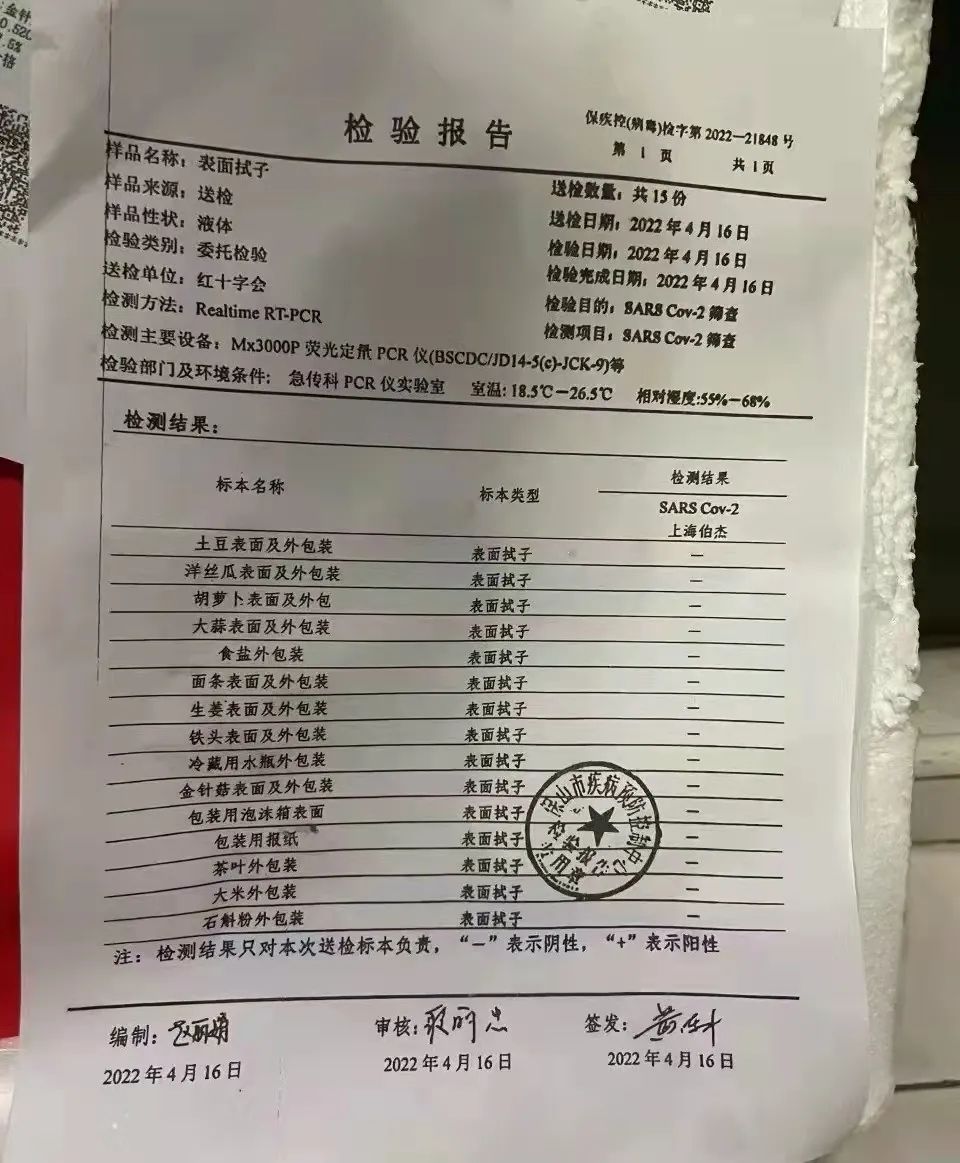 金针
0.520
.5%
格
检验报告
保疾控(病毒)检字第 2022—21848 号
第 1 页 共 1 页
样品名称：表面拭子
样品来源：送检 送检数量：共 15 份
样品性状：液体 送检日期：2022 年 4 月 16 日
检验类别：委托检验 检验日期：2022 年 4 月 16 日
送检单位：红十字会 检验完成日期：2022 年 4 月 16 日
检测方法：Realtime RT-PCR 检验目的：SARS Cov-2 筛查
检测项目：SARS Cov-2 筛查
检测主要设备：Mx3000P 荧光定量 PCR 仪(BSCDC/JD14-5(c)-JCK-9)等
检验部门及环境条件：急传科 PCR 仪实验室 室温：18.5℃－26.5℃ 相对湿度:55%－68%
检测结果：
标本名称 标本类型 检测结果
SARS Cov-2
上海伯杰
土豆表面及外包装 表面拭子 —
洋丝瓜表面及外包装 表面拭子 —
胡萝卜表面及外包 表面拭子 —
大蒜表面及外包装 表面拭子 —
食盐外包装 表面拭子 —
面条表面及外包装 表面拭子 —
生姜表面及外包装 表面拭子 —
铁头表面及外包装 表面拭子 —
冷藏用水瓶外包装 表面拭子 —
金针菇表面及外包装 表面拭子 —
包装用泡沫箱表面 表面拭子 —
包装用报纸 表面拭子 —
茶叶外包装 表面拭子 —
大米外包装 表面拭子 —
石斛粉外包装 表面拭子 —
山市疾病预防控制中心
检验报告
专用章
注：检测结果只对本次送检标本负责，“－”表示阴性，“+”表示阳性
编制： 审核： 签发：
2022 年 4 月 16 日 2022 年 4 月 16 日 2022 年 4 月 16 日